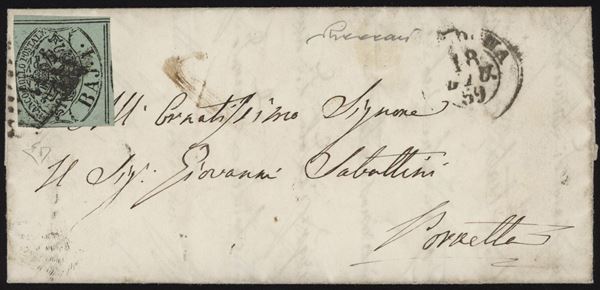 FRANCO BOLLO POSTALE
1 BAJ
ROMA
18
59
All' Ornatissimo Signore
Il Sig: Giovanni Sabattini
Porretta